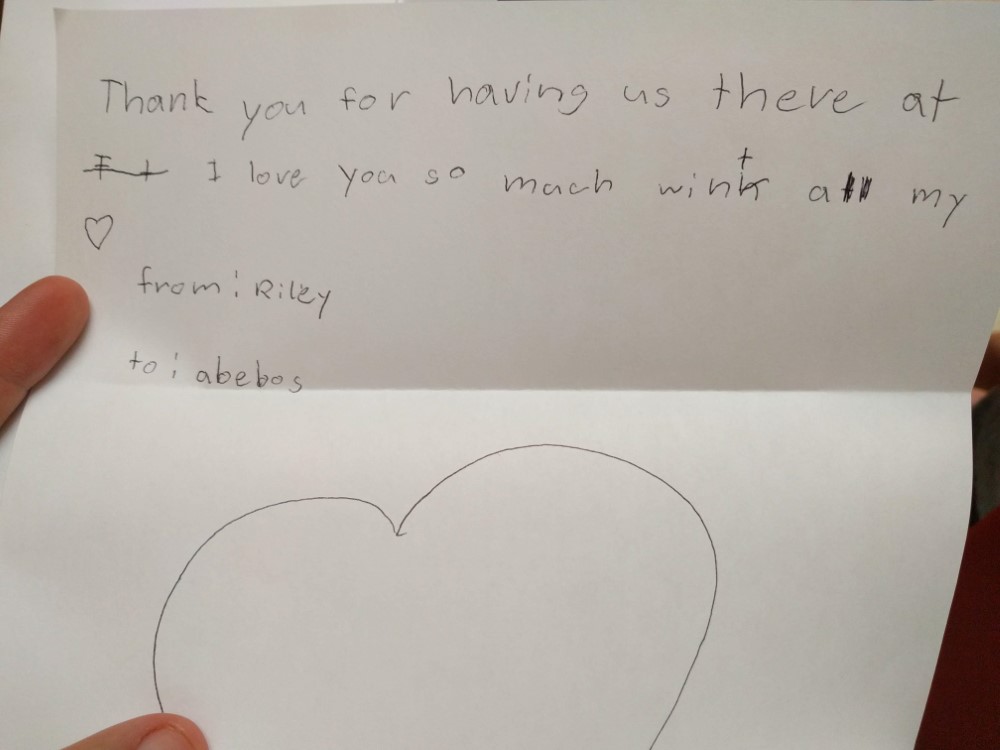 Thank you for having us there at
I love you so much with all my
♡
from: Riley
to: abebos